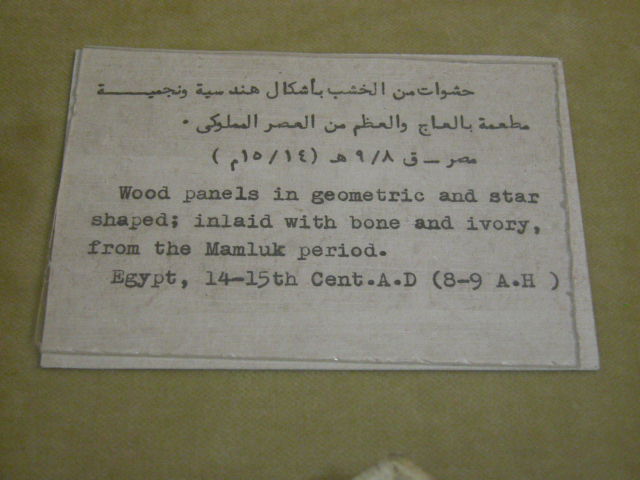 حشوات من الخشب بأشكال هندسية ونجميـــــة
مطعمة بالعاج والعظم من العصر المملوكى .
مصر ــ ق ٩/٨ هـ (١٥/١٤م )
Wood panels in geometric and star
shaped; inlaid with bone and ivory,
from the Mamluk period.
Egypt, 14-15th Cent.A.D (8-9 A.H )